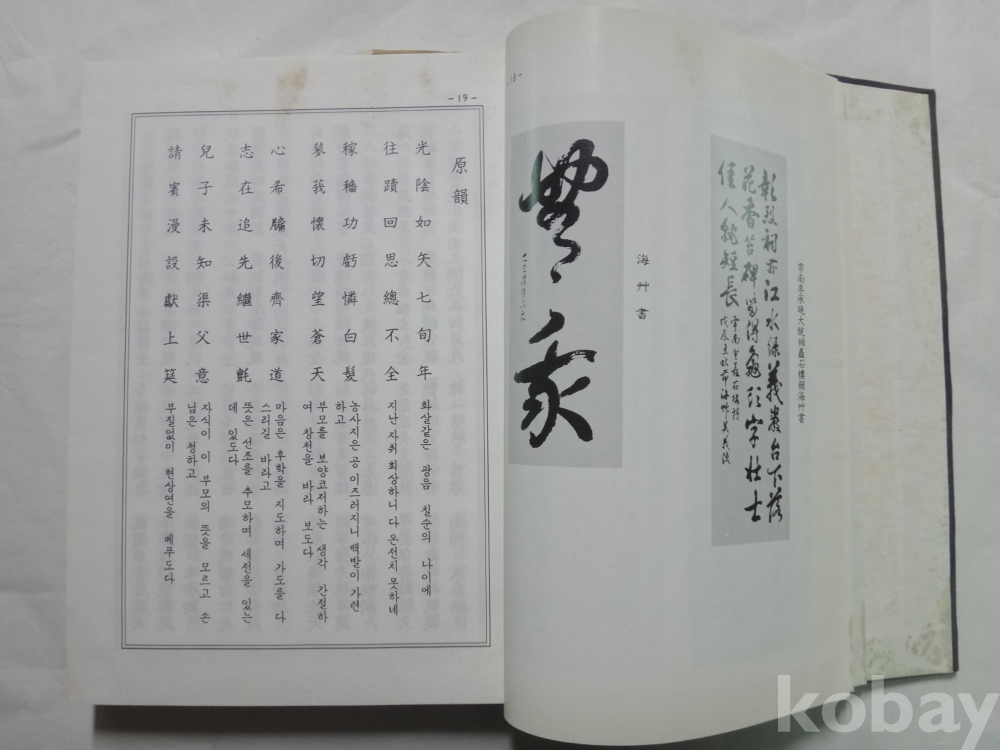 雩南李承晩大統領矗石樓韻海艸書
彰烈祠前江水綠義岩台下落
花香苔碑留得龜頭字壯士
佳人孰短長
海艸書
-19-
原韻
光陰如矢七旬年
화살같은 광음 칠순의 나이에
往蹟回思總不全
지난 자취 회상하니 다 온전치 못하네
稼穡功虧憐白髮
농사지은 공 이즈러지니 백발이 가련
하고
蓼莪懷切望蒼天
부모를 보양코저하는 생각 간절하
여 창천을 바라 보도다
心希牖後齊家道
마음은 후학을 지도하며 가도를 다
스리길 바라고
志在追先繼世氈
뜻은 선조를 추모하며 세전을 있는
데 있도다
兒子未知渠父意
자식이 이 부모의 뜻을 모르고 손
님은 청하고
請賓漫設獻上筵
부질없이 현상연을 베푸도다
kobay